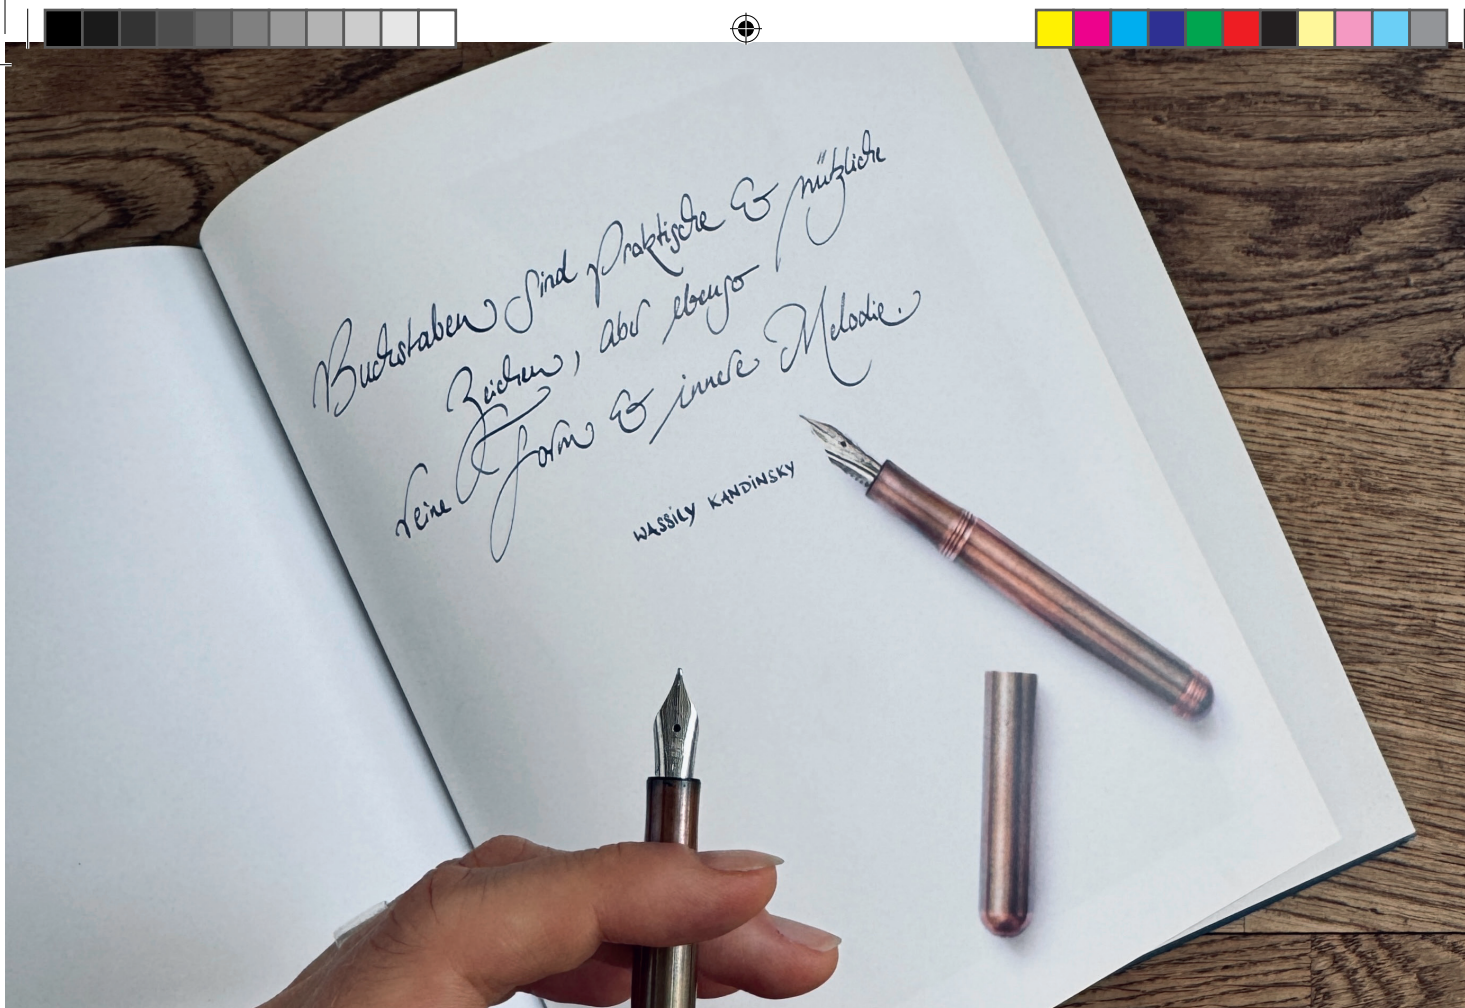 Buchstaben sind praktische & nützliche
Zeichen, aber ebenso
reine Form & innere Melodie.
WASSILY KANDINSKY